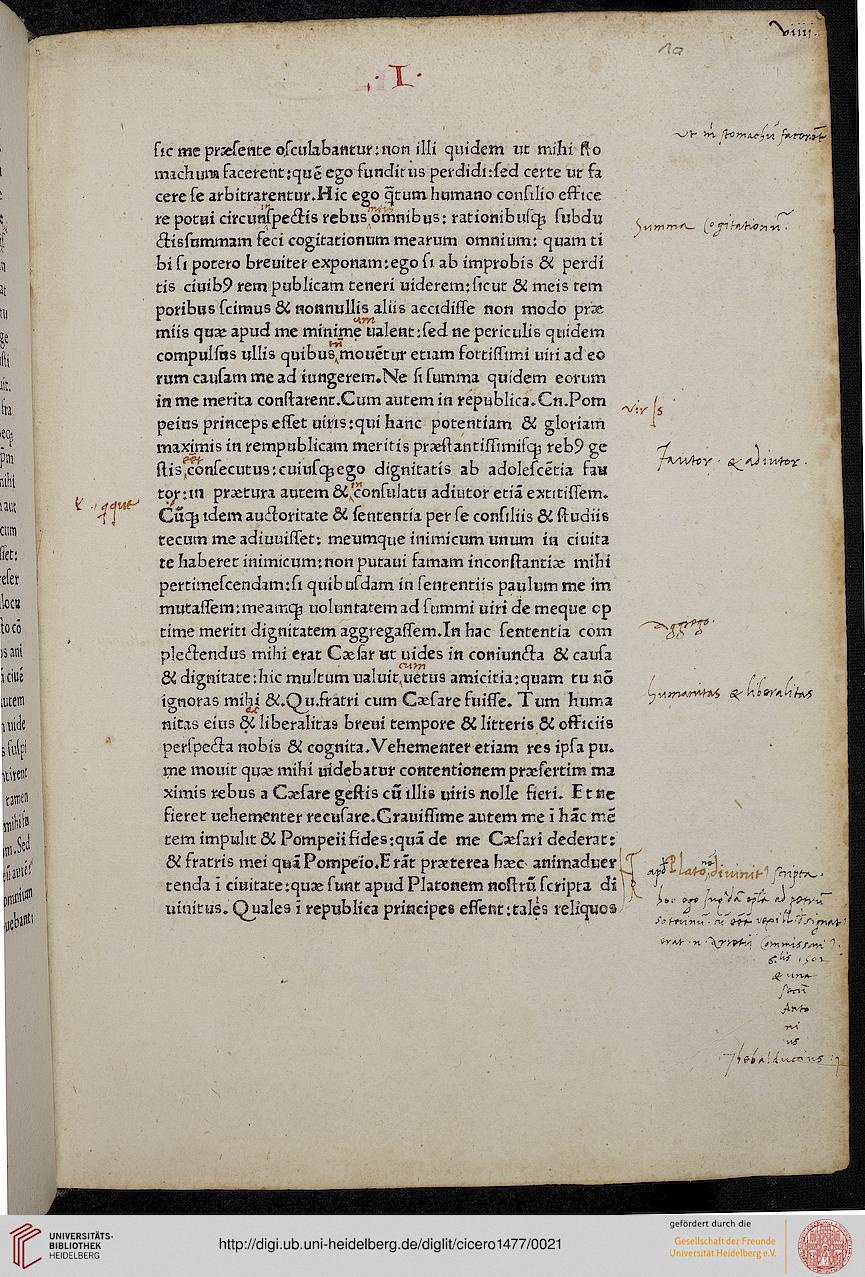 viiii.
10
.I.
sic me præsente osculabantur: non illi quidem ut mihi sto
machum facerent: quẽ ego funditus perdidi: sed certe ut fa
cere se arbitrarentur. Hic ego q̃tum humano consilio effice
re potui circunspectis rebus omnibus: rationibusq; subdu
in meis
ctis summam feci cogitationum mearum omnium: quam ti
bi si potero breuiter exponam: ego si ab improbis & perdi
tis ciuib9 rem publicam teneri uiderem: sicut & meis tem
poribus scimus & nonnullis aliis accidisse non modo præ
miis quæ apud me minime ualent: sed ne periculis quidem
um
compulsus ullis quibus mouẽtur etiam fortissimi uiri ad eo
rum causam me ad iungerem. Ne si summa quidem eorum
in me merita constarent. Cum autem in republica. Cn. Pom
peius princeps esset uiris: qui hanc potentiam & gloriam
maximis in rempublicam meritis præstantissimisq; reb9 ge
stis consecutus: cuiusq; ego dignitatis ab adolescẽtia fau
tor: in prætura autem & consulatu adiutor etiã extitissem.
in
Cũq; idem auctoritate & sententia per se consiliis & studiis
tecum me adiuuisset: meumque inimicum unum in ciuita
te haberet inimicum: non putaui famam inconstantiæ mihi
pertimescendam: si quibusdam in sententiis paulum me im
mutassem: meamq; uoluntatem ad summi uiri de meque op
time meriti dignitatem aggregassem. In hac sententia com
plectendus mihi erat Cæsar ut uides in coniuncta & causa
& dignitate: hic multum ualuit uetus amicitia: quam tu nõ
cum
ignoras mihi &. Qu. fratri cum Cæsare fuisse. Tum huma
nitas eius & liberalitas breui tempore & litteris & officiis
et
perspecta nobis & cognita. Vehementer etiam res ipsa pu.
me mouit quæ mihi uidebatur contentionem præsertim ma
ximis rebus a Cæsare gestis cũ illis uiris nolle fieri. Et ne
fieret uehementer recusare. Grauissime autem me ĩ hãc mẽ
tem impulit & Pompeii fides: quã de me Cæsari dederat:
& fratris mei quã Pompeio. Erãt præterea hæc animaduer
tenda ĩ ciuitate: quæ sunt apud Platonem nostrũ scripta di
uinitus. Quales ĩ republica principes essent: tales reliquos
Summa Cogitationũ.
Fautor. & adiutor.
Aggrego.
humanitas & liberalitas
scripta.
1502
& una
Anto
ni
us
Thebalduccius
UNIVERSITÄTS-
BIBLIOTHEK
HEIDELBERG
http://digi.ub.uni-heidelberg.de/diglit/cicero1477/0021
gefördert durch die
Gesellschaft der Freunde
Universität Heidelberg e.V.